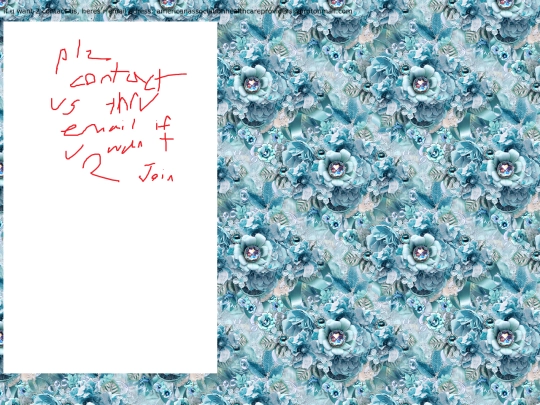 if u want 2 contact us, heres r email adress: americanassociationhealthcareproviders@protonmail.com
plz
contact
us thru
email if
u wan t
2 Join